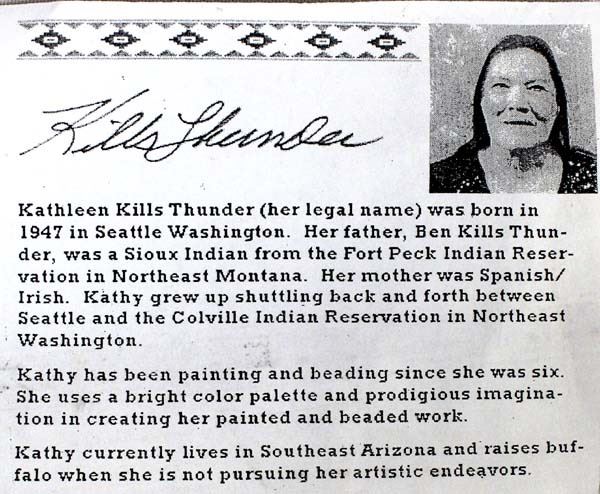 Kills Thunder
Kathleen Kills Thunder (her legal name) was born in
1947 in Seattle Washington. Her father, Ben Kills Thun-
der, was a Sioux Indian from the Fort Peck Indian Reser-
vation in Northeast Montana. Her mother was Spanish/
Irish. Kathy grew up shuttling back and forth between
Seattle and the Colville Indian Reservation in Northeast
Washington.
Kathy has been painting and beading since she was six.
She uses a bright color palette and prodigious imagina-
tion in creating her painted and beaded work.
Kathy currently lives in Southeast Arizona and raises buf-
falo when she is not pursuing her artistic endeavors.